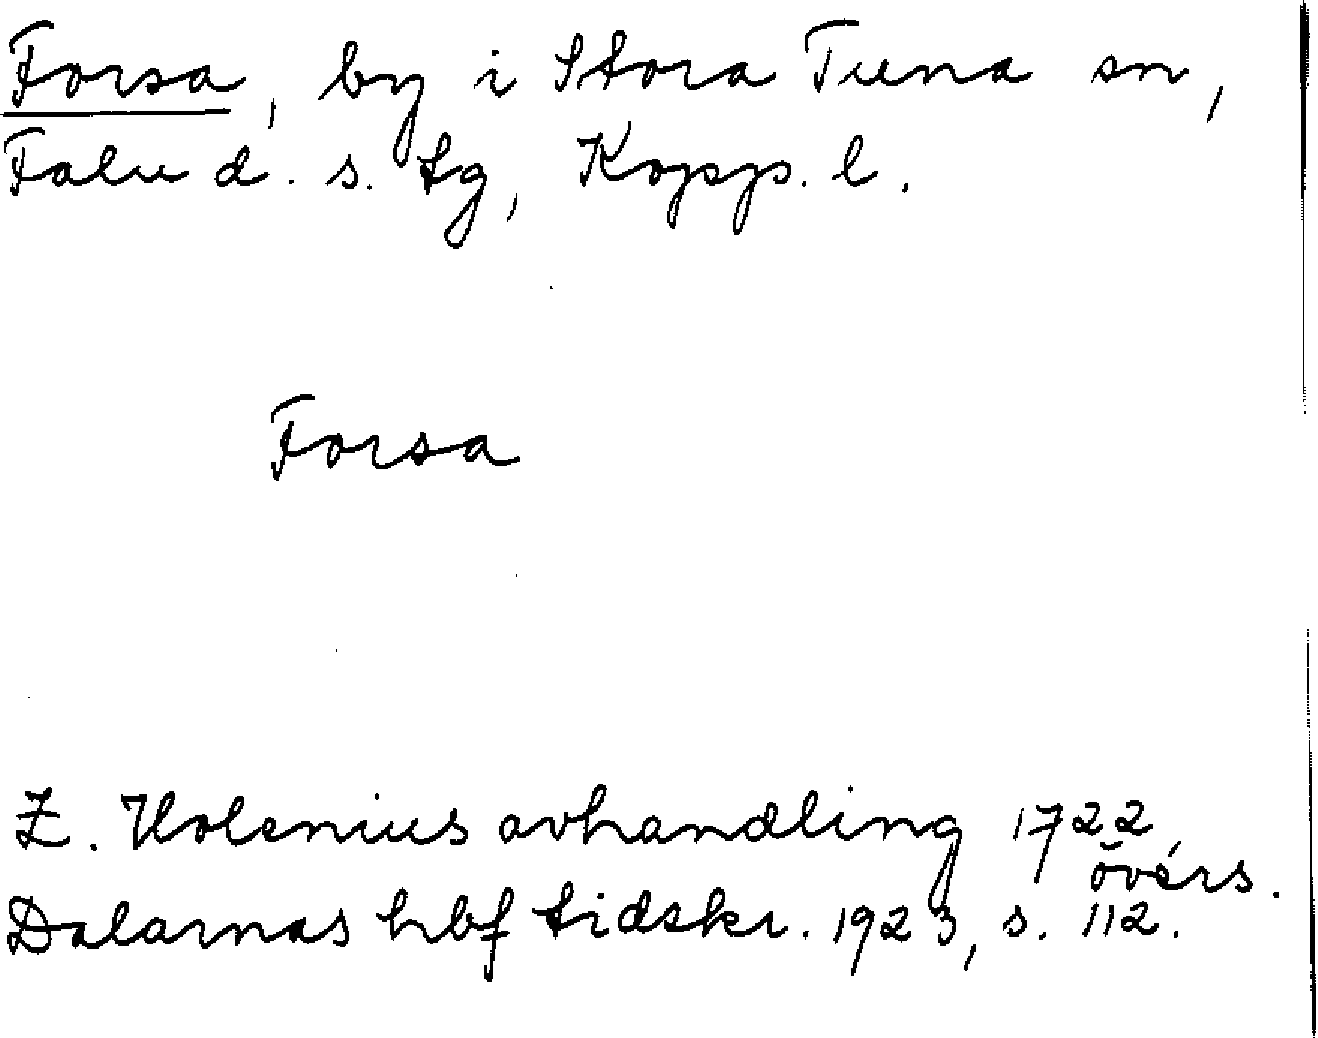 Forsa, by i Stora Tuna sn,
Falu d. s. tg, Kopp. l.
Forsa
Z. Holenius avhandling 1722,
övers.
Dalarnas hbf tidskr. 1923, s. 112.